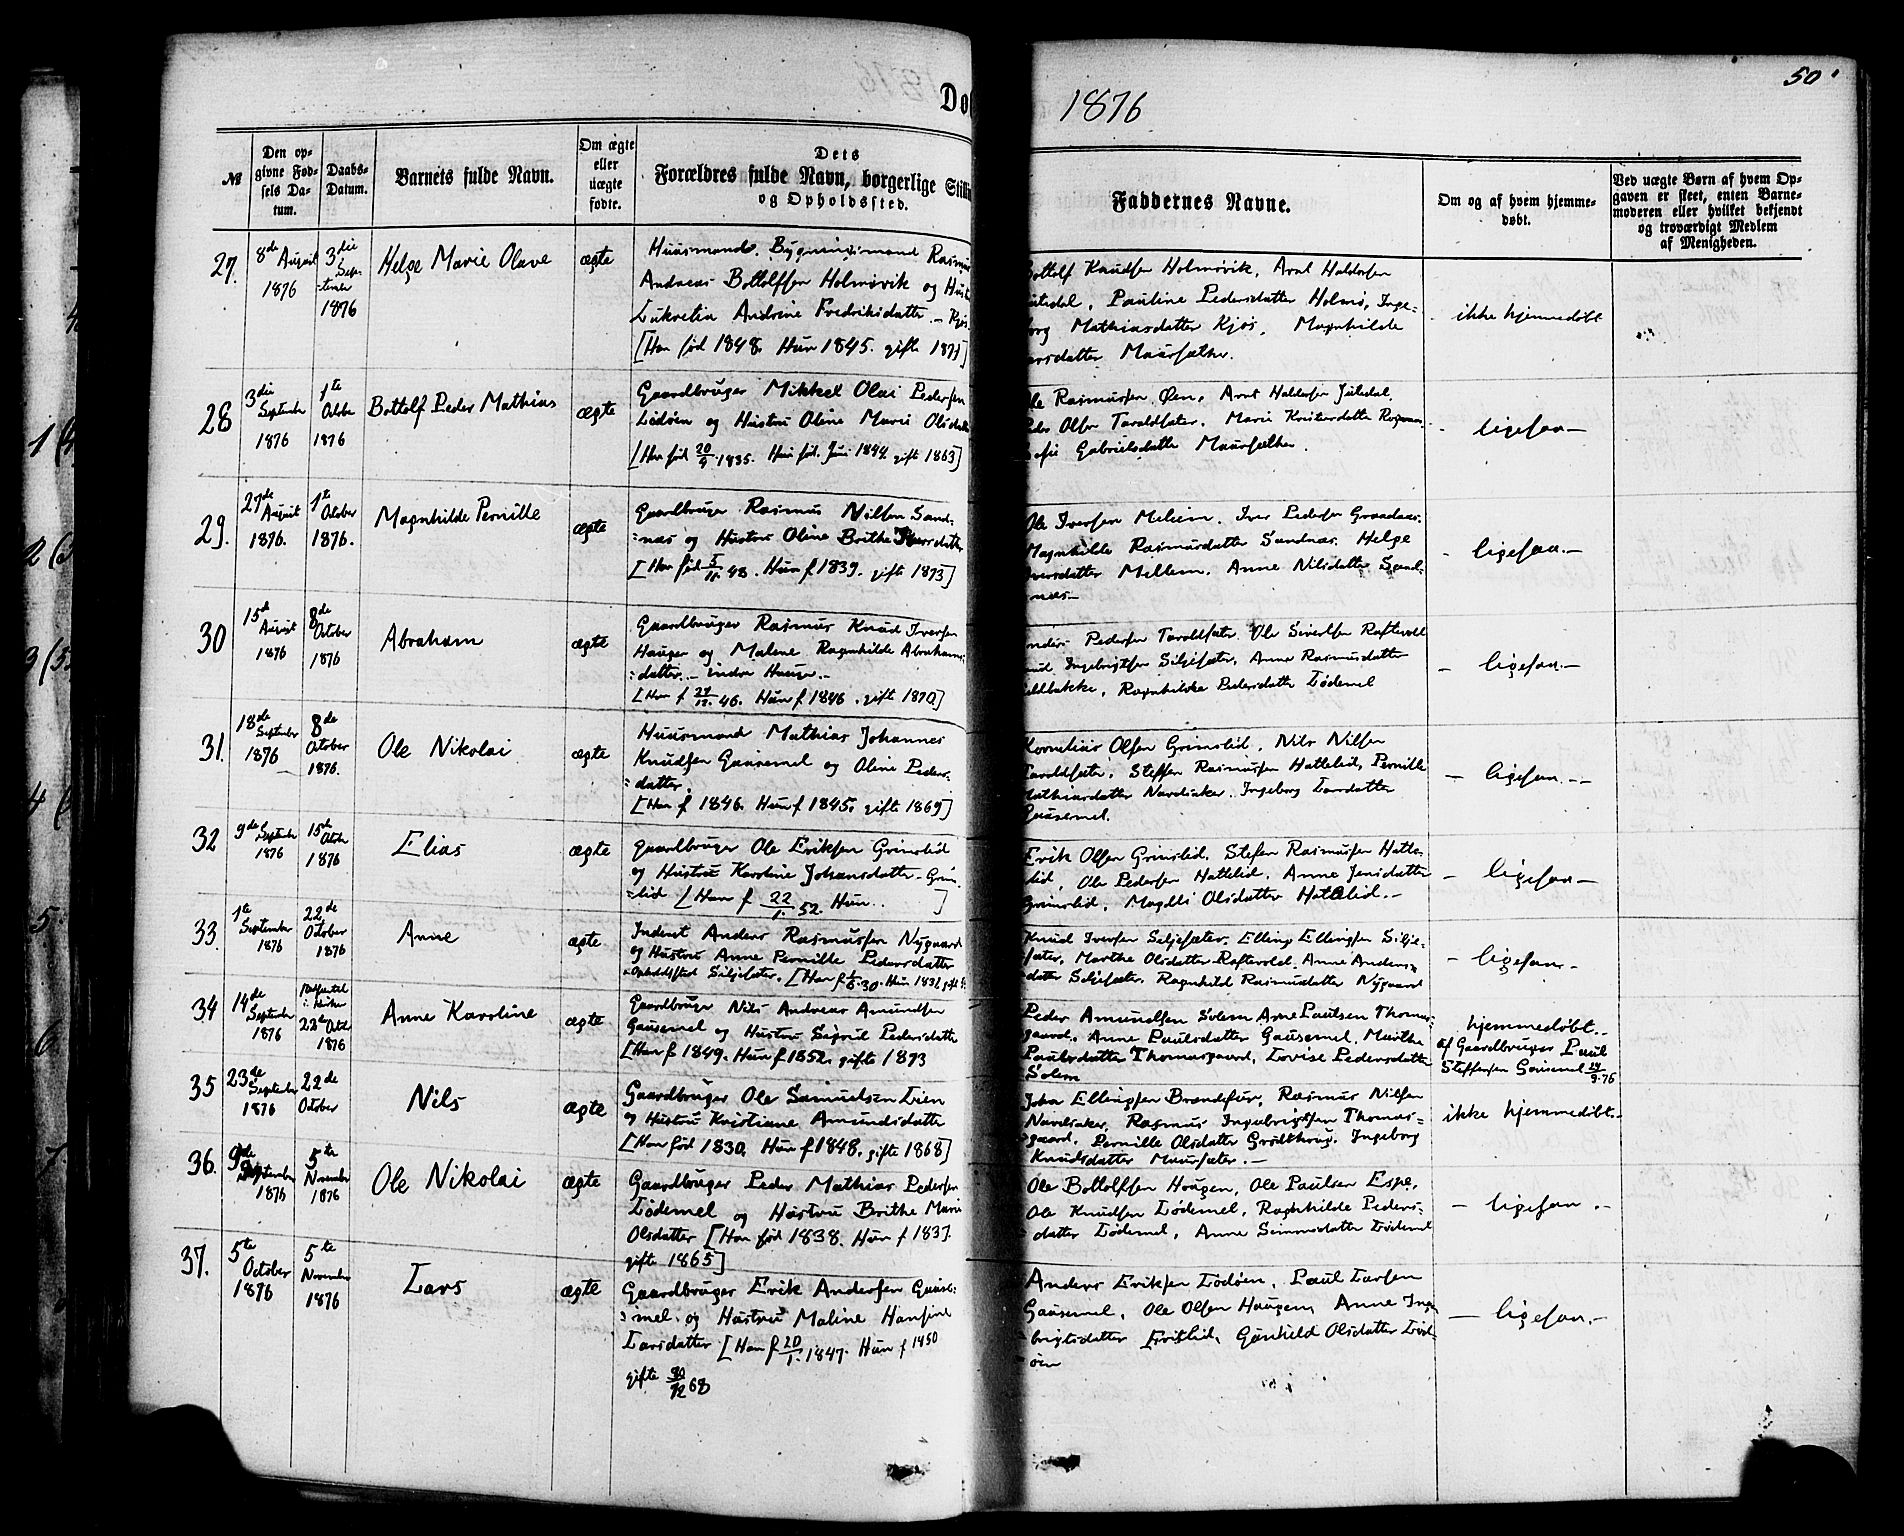 50
Do
1876
№
Den op-
givne Fød-
sels Da-
tum.
Daabs-
Datum.
Barnets fulde Navn.
Om ægte
eller
uægte
fødte.
Dets
Forældres fulde Navn, borgerlige Stilli
og Opholdssted.
Faddernes Navne.
Om og af hvem hjemme-
døbt.
Ved uægte Børn af hvem Op-
gaven er skeet, enten Barne-
moderen eller hvilket bekjendt
og troværdigt Medlem
af Menigheden.
27.
8de August
1876
3die
Sep-
tember
1876
Helge Marie Olave
ægte
Huusmand. Bygningsmand Rasmus
Andreas Bottolfsen Holmøvik og Hust
Lukretia Andrine Fredriksdatter. –
[Han fød 1848. Hun 1845. gifte 1871]
Bottolf Knudsen Holmøvik, Arnt Haldorsen
Pauline Pedersdatter Holmø, Inge-
borg Mathiasdatter Kjøs, Magnhilde
Larsdatter Maursæther.
ikke hjemmedøbt
28
3die
September
1876
1te
Octbr
1876
Bottolf Peder Mathias
ægte
Gaardbruger Mikkel Olai Pedersen
Lødøen og Hustru Oline Marie Olsdatter
[Han fød 20/9 1835. Hun fød. Juni 1844. gift 1863]
Ole Rasmussen Øen, Arnt Haldorsen
Peder Olsen Taraldsæter, Marie Kristensdatter
Sofie Gabrielsdatter Maursæther.
– ligesaa –
29.
27de
August
1876.
1te
October
1876.
Magnhilde Pernille
ægte
Gaardbruger Rasmus Nilsen Sand-
næs og Hustru Oline Brithe Iversdatter
[Han fød 5/11 43. Hun f 1839. gifte 1873]
Ole Iversen Meliem. Iver Pedersen
Magnhilde Rasmusdatter Sandnæs. Helge
Iversdatter Mellem. Anne Nilsdatter Sand-
næs –
– ligesaa. –
30
15de
August
1876
8de
October
1876
Abraham
ægte
Gaardbruger Rasmus Knud Iversen
Haugen og Malene Ragnhilde Abrahams-
datter. – indre Haugen. –
[Han f 24/12 46. Hun f 1846. gifte 1870]
Anders Pedersen Taraldsæter. Ole Sivertsen Raftevold
Knud Ingebrigtsen Siljesæter, Anne Rasmusdatter
Ragnhilde Pedersdatter Lødemel
– ligesaa. –
31.
18de
September
1876
8de
October
1876.
Ole Nikolai
ægte
Huusmand Mathias Johannes
Knudsen Gausemel og Oline Peders-
datter.
[Han f 1846. Hun f 1845. gifte 1869]
Kornelius Olsen Grinslid, Nils Nilsen
Taraldsæter, Steffen Rasmussen Hattelid, Pernille
Mathiasdatter Navdsaker. Ingeborg Larsdatter
Gausemel.
– ligesaa. –
32
9de September
1876
15de
Octbr
1876
Elias
ægte
Gaardbruger Ole Eriksen Grinslid
og Hustru Karoline Johansdatter – Grin-
slid [Han f 22/1 52. Hun . . ]
Erik Olsen Grinslid. Stefen Rasmussen Hatte-
lid, Ole Pedersen Hattelid, Anne Jensdatter
Grinslid, Magdli Olsdatter Hattelid. –
– ligesaa –
33.
1te
September
1876
22de
October
1876
Anne
ægte
Inderst Anders Rasmussen Nygaard
og Hustru Anne Pernille Pedersdatter
Opholdssted Siljesæter.
Knud Iversen Siljesæter. Elling Ellingsen Silje-
sæter, Marthe Olsdatter Raftevold. Anne Anders-
datter Siljesæter. Ragnhild Rasmusdatter Nygaard
– ligesaa –
34
14de
September
1876
22de Octbr
1876
Anne Karoline
ægte
Gaardbruger Nils Andreas Amundsen
Gausemel og Hustru Sigrid Pedersdatter
[Han f 1849. Hun f 1852. gifte 1873
Peder Amundsen Solem Arne Paulsen Thomas-
gaard, Anne Paulsdatter Gausemel, Marthe
Paulsdatter Thomasgaard, Lovise Pedersdatter
Solem
hjemmedøbt. –
af Gaardbruger Paul
Steffensen Gausemel 24/9.76
35
23de
September
1876
22de
October
Nils
ægte
Gaardbruger Ole Samuelsen Lien
og Hustru Kristiane Amundsdatter
[Han fød 1830. Hun f 1848. gifte 1868]
John Ellingsen Rasmus Nilsen
Navdsaker, Rasmus Ingebrigtsen Thomas-
gaard, Pernille Olsdatter Ingeborg
Knudsdatter Maursæter. –
ikke hjemmedøbt. –
36.
9de
September
1876
5te
November
1876
Ole Nikolai
ægte
Gaardbruger Peder Mathias Pedersen
Lødemel og Hustru Brithe Marie
Olsdatter [Han fød 1838. Hun f 1837.
gifte 1865]
Ole Bottolfsen Hougen, Ole Paulsen Espe,
Ole Knudsen Lødemel, Ragnhilde Peders-
datter Lødemel, Anne Simonsdatter Lødemel
– ligesaa. –
37.
5te
October
1876
5te
November
1876
Lars
ægte
Gaardbruger Erik Andersen Gause-
mel. og Hustru Maline Hansine
Larsdatter [Han f 20/1. 1847. Hun f 1850
gifte 30/12 68
Anders Eriksen Lødøen, Paul Larsen
Gausemel, Ole Olsen Haugen, Anne Inge-
brigtsdatter Gunhild Olsdatter Lød-
øen
– ligesaa. –